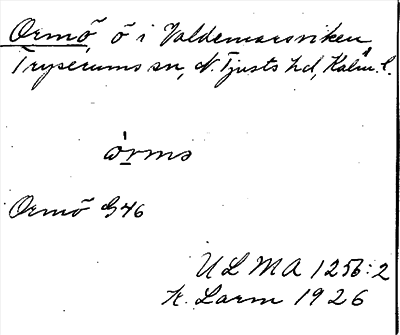 Ormö, ö i Valdemarsviken
Tryserums sn, N. Tjusts hd, Kalm. l.
òrmö
Ormö G46
ULMA 1256:2
K. Larm 1926